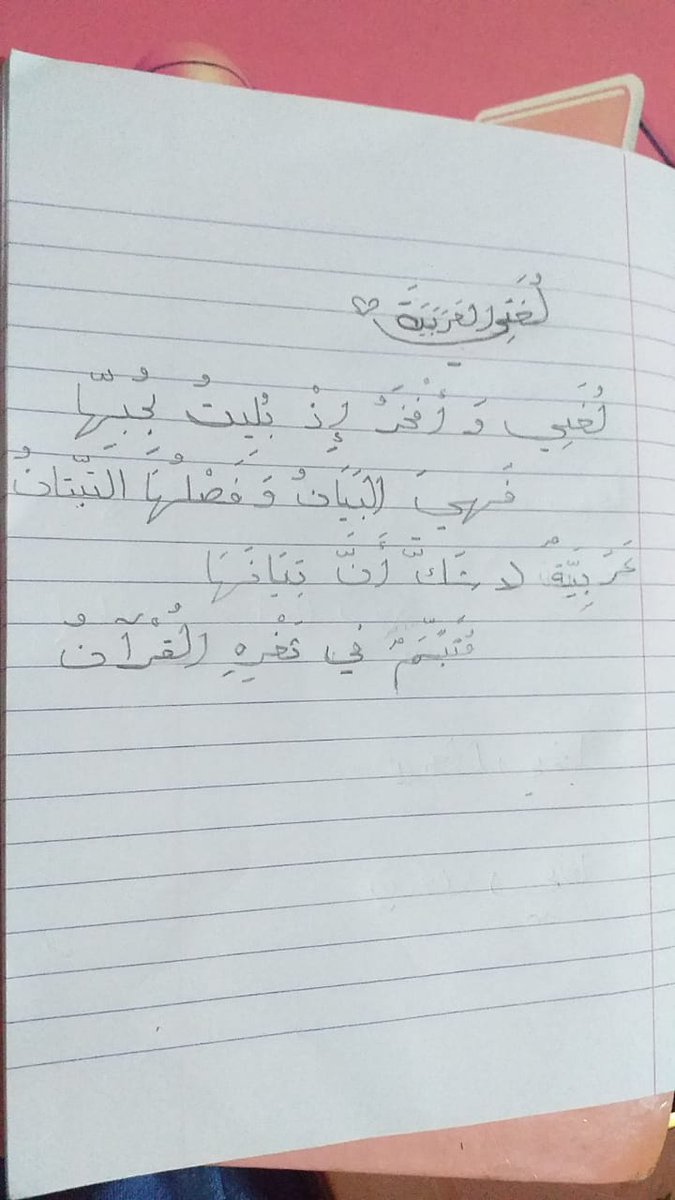 لُغَتِي العَرَبَيَةَ ♡
لُغَتِي وَ أَفْخَرُ إِذْ بُلِيتُ بِحُبِّهَا
فَهيَ البَيَانُ وَ فَضْلُهَا التِّبيَانُ
عَرَبِيَّةٌ لا شَكَّ أَنَّ بَيَانَهَا
مُتَبَسِّمٌ في ثَغْرِهِ الْقُرْآنُ